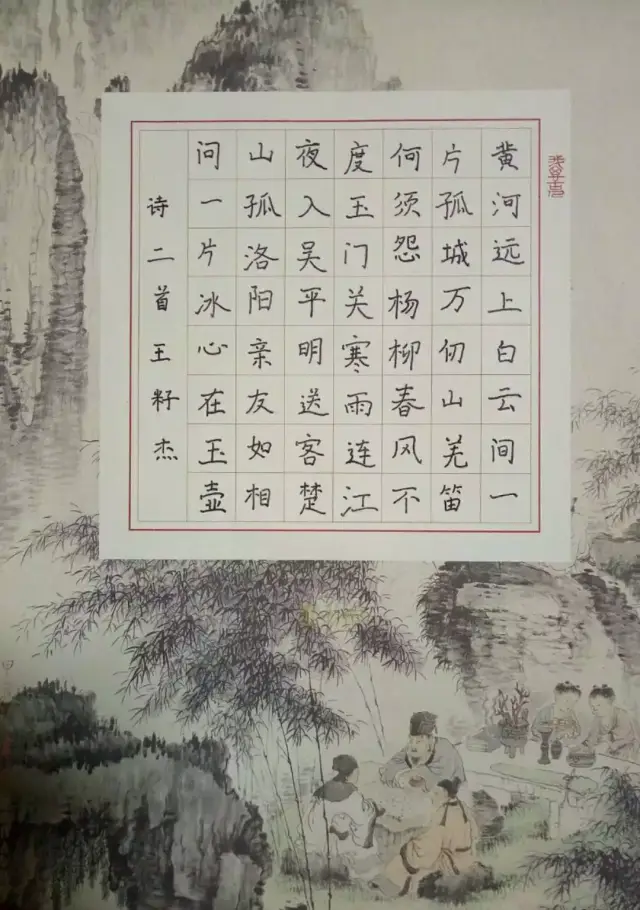 黄河远上白云间一
片孤城万仞山羌笛
何须怨杨柳春风不
度玉门关寒雨连江
夜入吴平明送客楚
山孤洛阳亲友如相
问一片冰心在玉壶
诗二首王籽杰